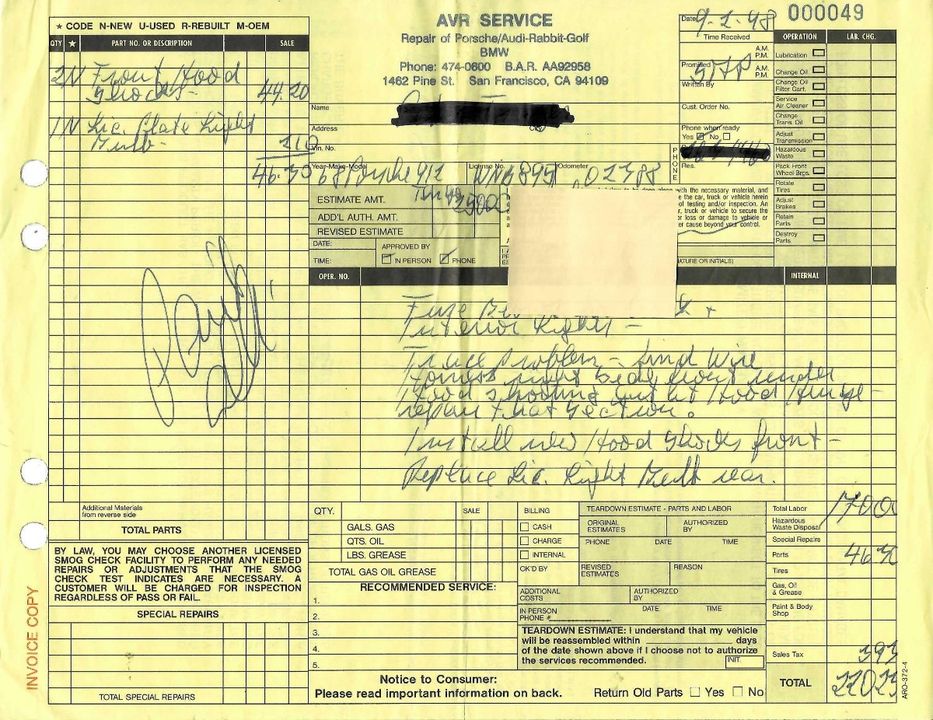 ★ CODE N-NEW U-USED R-REBUILT M-OEM
QTY ★ PART NO. OR DESCRIPTION SALE
2 N Front Hood
Shocks - 44.20
1 N Lic. Plate Light
Bulb - 2.10
46.30
AVR SERVICE
Repair of Porsche/Audi-Rabbit-Golf
BMW
Phone: 474-0600 B.A.R. AA92958
1462 Pine St. San Francisco, CA 94109
Date 9-2-98 000049
Time Received A.M. P.M.
Promised A.M. P.M.
Written By
Name
Cust. Order No.
Address
Phone when ready
Yes No
Vin. No.
PHONE
Res.
Year-Make-Model License No. Odometer
68 Porsche 912 02388
ESTIMATE AMT.
ADD'L AUTH. AMT.
REVISED ESTIMATE
DATE: APPROVED BY
TIME: IN PERSON PHONE
with the necessary material, and
the car, truck or vehicle herein
of testing and/or inspection. An
car, truck or vehicle to secure the
or loss or damage to vehicle or
er cause beyond your control.
OPERATION LAB. CHG.
Lubrication
Change Oil
Change Oil Filter Cart.
Service Air Cleaner
Change Trans. Oil
Adjust Transmission
Hazardous Waste
Pack Front Wheel Brgs.
Rotate Tires
Adjust Brakes
Retain Parts
Destroy Parts
OPER. NO. INTERNAL
Fuse
Interior Lights -
Trace Problem - find wire
Harness right side front under
Hood shorting out at Hood Hinge -
repair that section.
Install new Hood Shocks front -
Replace Lic. Light Bulb rear.
Paid
Additional Materials
from reverse side
TOTAL PARTS
BY LAW, YOU MAY CHOOSE ANOTHER LICENSED
SMOG CHECK FACILITY TO PERFORM ANY NEEDED
REPAIRS OR ADJUSTMENTS THAT THE SMOG
CHECK TEST INDICATES ARE NECESSARY. A
CUSTOMER WILL BE CHARGED FOR INSPECTION
REGARDLESS OF PASS OR FAIL.
SPECIAL REPAIRS
TOTAL SPECIAL REPAIRS
INVOICE COPY
QTY. SALE
GALS. GAS
QTS. OIL
LBS. GREASE
TOTAL GAS OIL GREASE
RECOMMENDED SERVICE:
1.
2.
3.
4.
5.
BILLING
CASH
CHARGE
INTERNAL
OK'D BY
TEARDOWN ESTIMATE - PARTS AND LABOR
ORIGINAL ESTIMATES AUTHORIZED BY
PHONE DATE TIME
REVISED ESTIMATES REASON
ADDITIONAL COSTS AUTHORIZED BY
IN PERSON DATE TIME
PHONE #
TEARDOWN ESTIMATE: I understand that my vehicle
will be reassembled within days
of the date shown above if I choose not to authorize
the services recommended. INIT.
Total Labor 170 00
Hazardous Waste Disposal
Special Repairs
Parts 46 30
Tires
Gas, Oil & Grease
Paint & Body Shop
Sales Tax 393
TOTAL 22023
Notice to Consumer:
Please read important information on back.
Return Old Parts Yes No
ARO-372-4